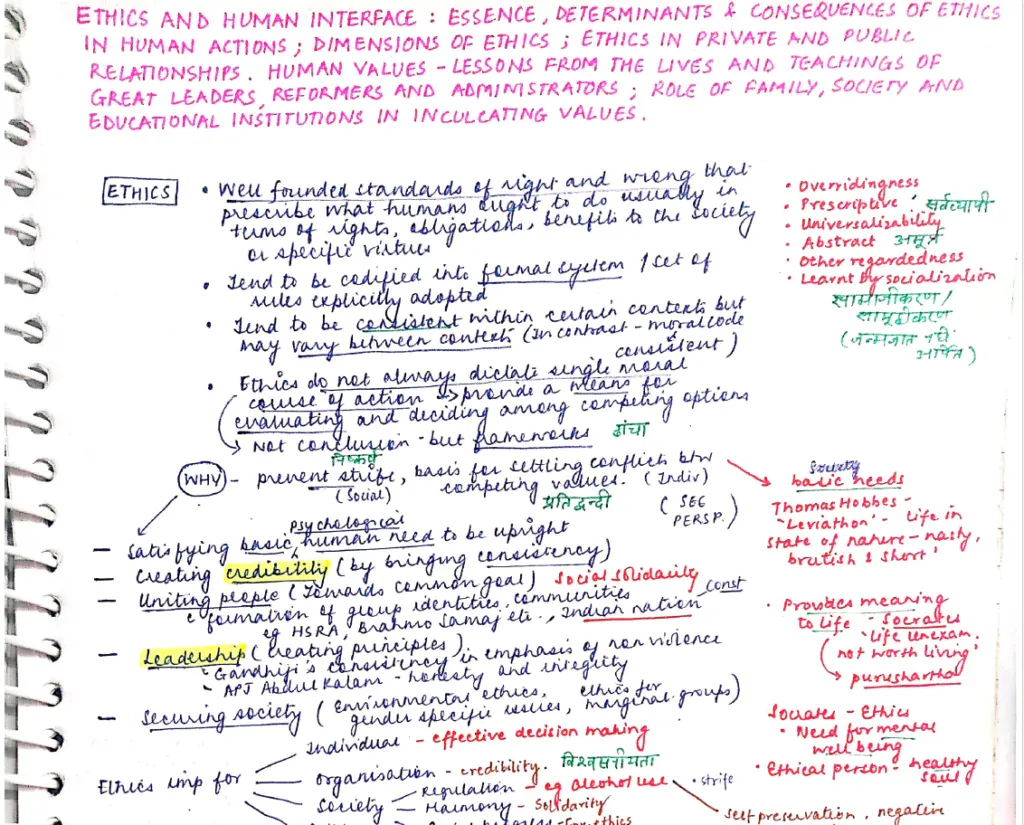 ETHICS AND HUMAN INTERFACE : ESSENCE, DETERMINANTS & CONSEQUENCES OF ETHICS
IN HUMAN ACTIONS ; DIMENSIONS OF ETHICS ; ETHICS IN PRIVATE AND PUBLIC
RELATIONSHIPS. HUMAN VALUES - LESSONS FROM THE LIVES AND TEACHINGS OF
GREAT LEADERS, REFORMERS AND ADMINISTRATORS ; ROLE OF FAMILY, SOCIETY AND
EDUCATIONAL INSTITUTIONS IN INCULCATING VALUES.
ETHICS
• Well founded standards of right and wrong that
prescribe what humans ought to do usually in
terms of rights, obligations, benefits to the society
or specific virtues
• Tend to be codified into formal system / set of
rules explicitly adopted
• Tend to be consistent within certain contexts but
may vary between contexts (In contrast - moral code
consistent)
• Ethics do not always dictate single moral
course of action -> provide a means for
evaluating and deciding among competing options
→ Not conclusion - but frameworks ढांचा
निष्कर्ष
• Overridingness
• Prescriptive सर्वव्यापी
• Universalizability
• Abstract अमूर्त
• Other regardedness
• Learnt by socialization
सामाजीकरण /
समूहीकरण
(जन्मजात नहीं
अर्जित)
WHY - prevent strife, basis for settling conflicts btw
(Social) competing values. (Indiv)
प्रतिद्वन्दी (SEE
PERSP.)
psychological
- Satisfying basic human need to be upright
- Creating credibility (by bringing consistency)
- Uniting people (Towards common goal) Social Solidarity
formation of group identities, communities const
eg HSRA, Brahmo Samaj etc., Indian nation
- Leadership (creating principles)
- Gandhiji's consistency in emphasis of non violence
- APJ Abdul Kalam - honesty and integrity
- Securing society (Environmental ethics, ethics for
gender specific issues, marginal groups)
Society
basic needs
Thomas Hobbes -
'Leviathon' - Life in
state of nature - nasty,
brutish & short'
• Provides meaning
to life - Socrates
'life unexam.
not worth living'
→ purushartha
Socrates - Ethics
• Need for mental
well being
• Ethical person - healthy
soul
Ethics imp for
Individual - effective decision making
organisation - credibility. विश्वसनीयता
Society
Regulation - eg alcohol use
Harmony - Solidarity
• strife
self preservation, negative